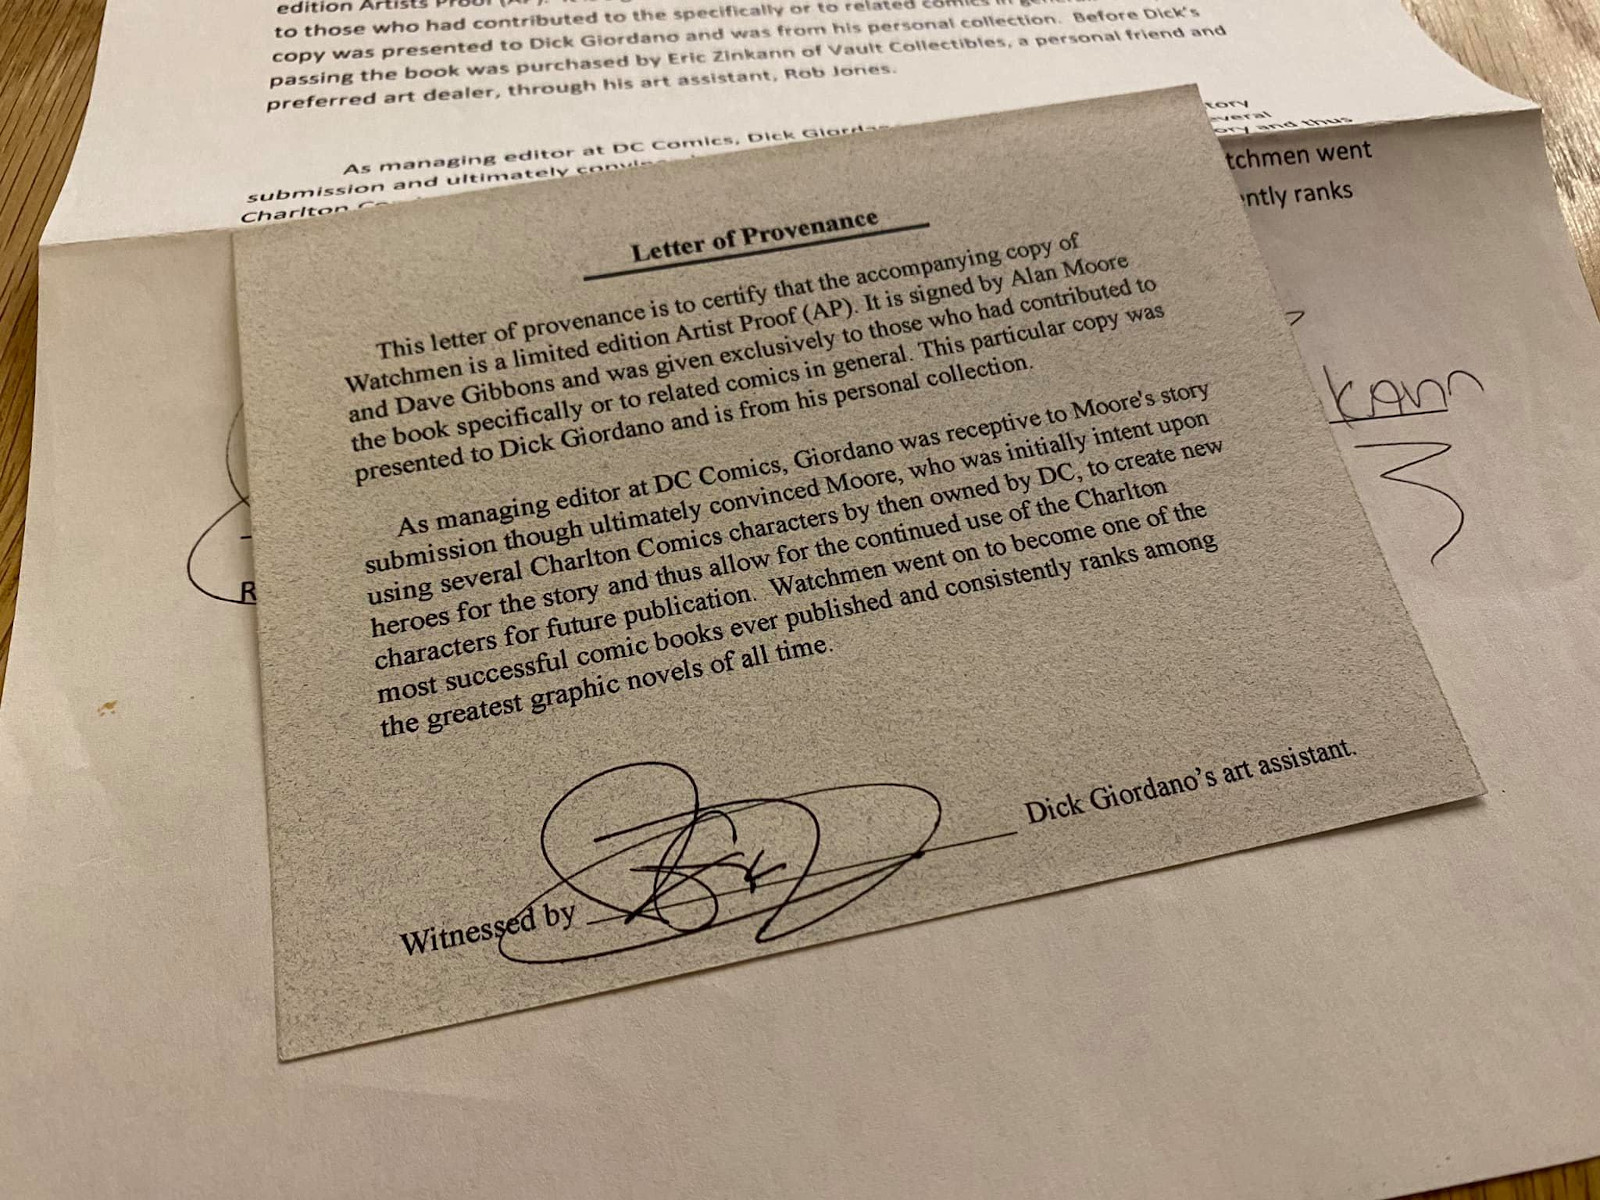 edition Artists Proof (AP).
to those who had contributed to the specifically or to related comics in general.
copy was presented to Dick Giordano and was from his personal collection. Before Dick's
passing the book was purchased by Eric Zinkann of Vault Collectibles, a personal friend and
preferred art dealer, through his art assistant, Rob Jones.
As managing editor at DC Comics, Dick Giordano
submission and ultimately
Charlton
tory
everal
ory and thus
tchmen went
ntly ranks
Letter of Provenance
This letter of provenance is to certify that the accompanying copy of
Watchmen is a limited edition Artist Proof (AP). It is signed by Alan Moore
and Dave Gibbons and was given exclusively to those who had contributed to
the book specifically or to related comics in general. This particular copy was
presented to Dick Giordano and is from his personal collection.
As managing editor at DC Comics, Giordano was receptive to Moore's story
submission though ultimately convinced Moore, who was initially intent upon
using several Charlton Comics characters by then owned by DC, to create new
heroes for the story and thus allow for the continued use of the Charlton
characters for future publication. Watchmen went on to become one of the
most successful comic books ever published and consistently ranks among
the greatest graphic novels of all time.
Witnessed by Dick Giordano's art assistant.
R
kann